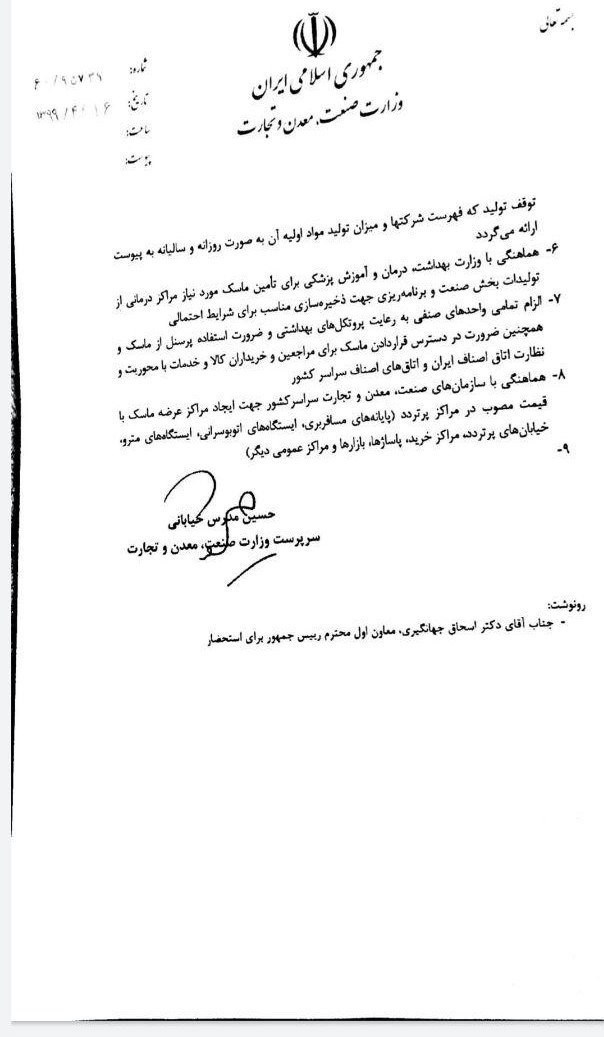 بسمه تعالی
جمهوری اسلامی ایران
وزارت صنعت، معدن و تجارت
شماره: ۶۰/۹۵۷۳۹
تاریخ: ۱۳۹۹/۴/۱۶
ساعت:
پیوست:
توقف تولید که فهرست شرکتها و میزان تولید مواد اولیه آن به صورت روزانه و سالیانه به پیوست
ارائه می‌گردد
۶- هماهنگی با وزارت بهداشت، درمان و آموزش پزشکی برای تأمین ماسک مورد نیاز مراکز درمانی از
تولیدات بخش صنعت و برنامه‌ریزی جهت ذخیره‌سازی مناسب برای شرایط احتمالی
۷- الزام تمامی واحدهای صنفی به رعایت پروتکل‌های بهداشتی و ضرورت استفاده پرسنل از ماسک و
همچنین ضرورت در دسترس قراردادن ماسک برای مراجعین و خریداران کالا و خدمات با محوریت و
نظارت اتاق اصناف ایران و اتاق‌های اصناف سراسر کشور
۸- هماهنگی با سازمان‌های صنعت، معدن و تجارت سراسرکشور جهت ایجاد مراکز عرضه ماسک با
قیمت مصوب در مراکز پرتردد (پایانه‌های مسافربری، ایستگاه‌های اتوبوسرانی، ایستگاه‌های مترو،
خیابان‌های پرتردد، مراکز خرید، پاساژها، بازارها و مراکز عمومی دیگر)
۹-
حسین مدرس خیابانی
سرپرست وزارت صنعت، معدن و تجارت
رونوشت:
- جناب آقای دکتر اسحاق جهانگیری، معاون اول محترم رییس جمهور برای استحضار